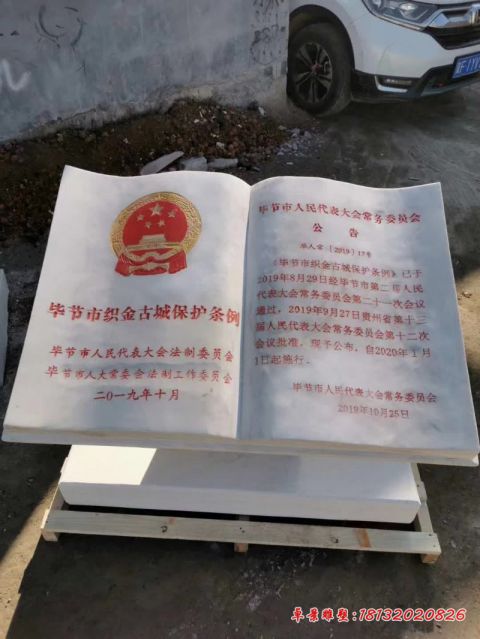 毕节市织金古城保护条例
毕节市人民代表大会法制委员会
毕节市人大常委会法制工作委员会
二〇一九年十月
毕节市人民代表大会常务委员会
公告
毕人常〔2019〕17号
《毕节市织金古城保护条例》已于
2019年8月29日经毕节市第二届人民
代表大会常务委员会第二十一次会议
通过，2019年9月27日贵州省第十三
届人民代表大会常务委员会第十二次
会议批准，现予公布，自2020年1月
1日起施行。
毕节市人民代表大会常务委员会
2019年10月25日
卓景雕塑:18132020826